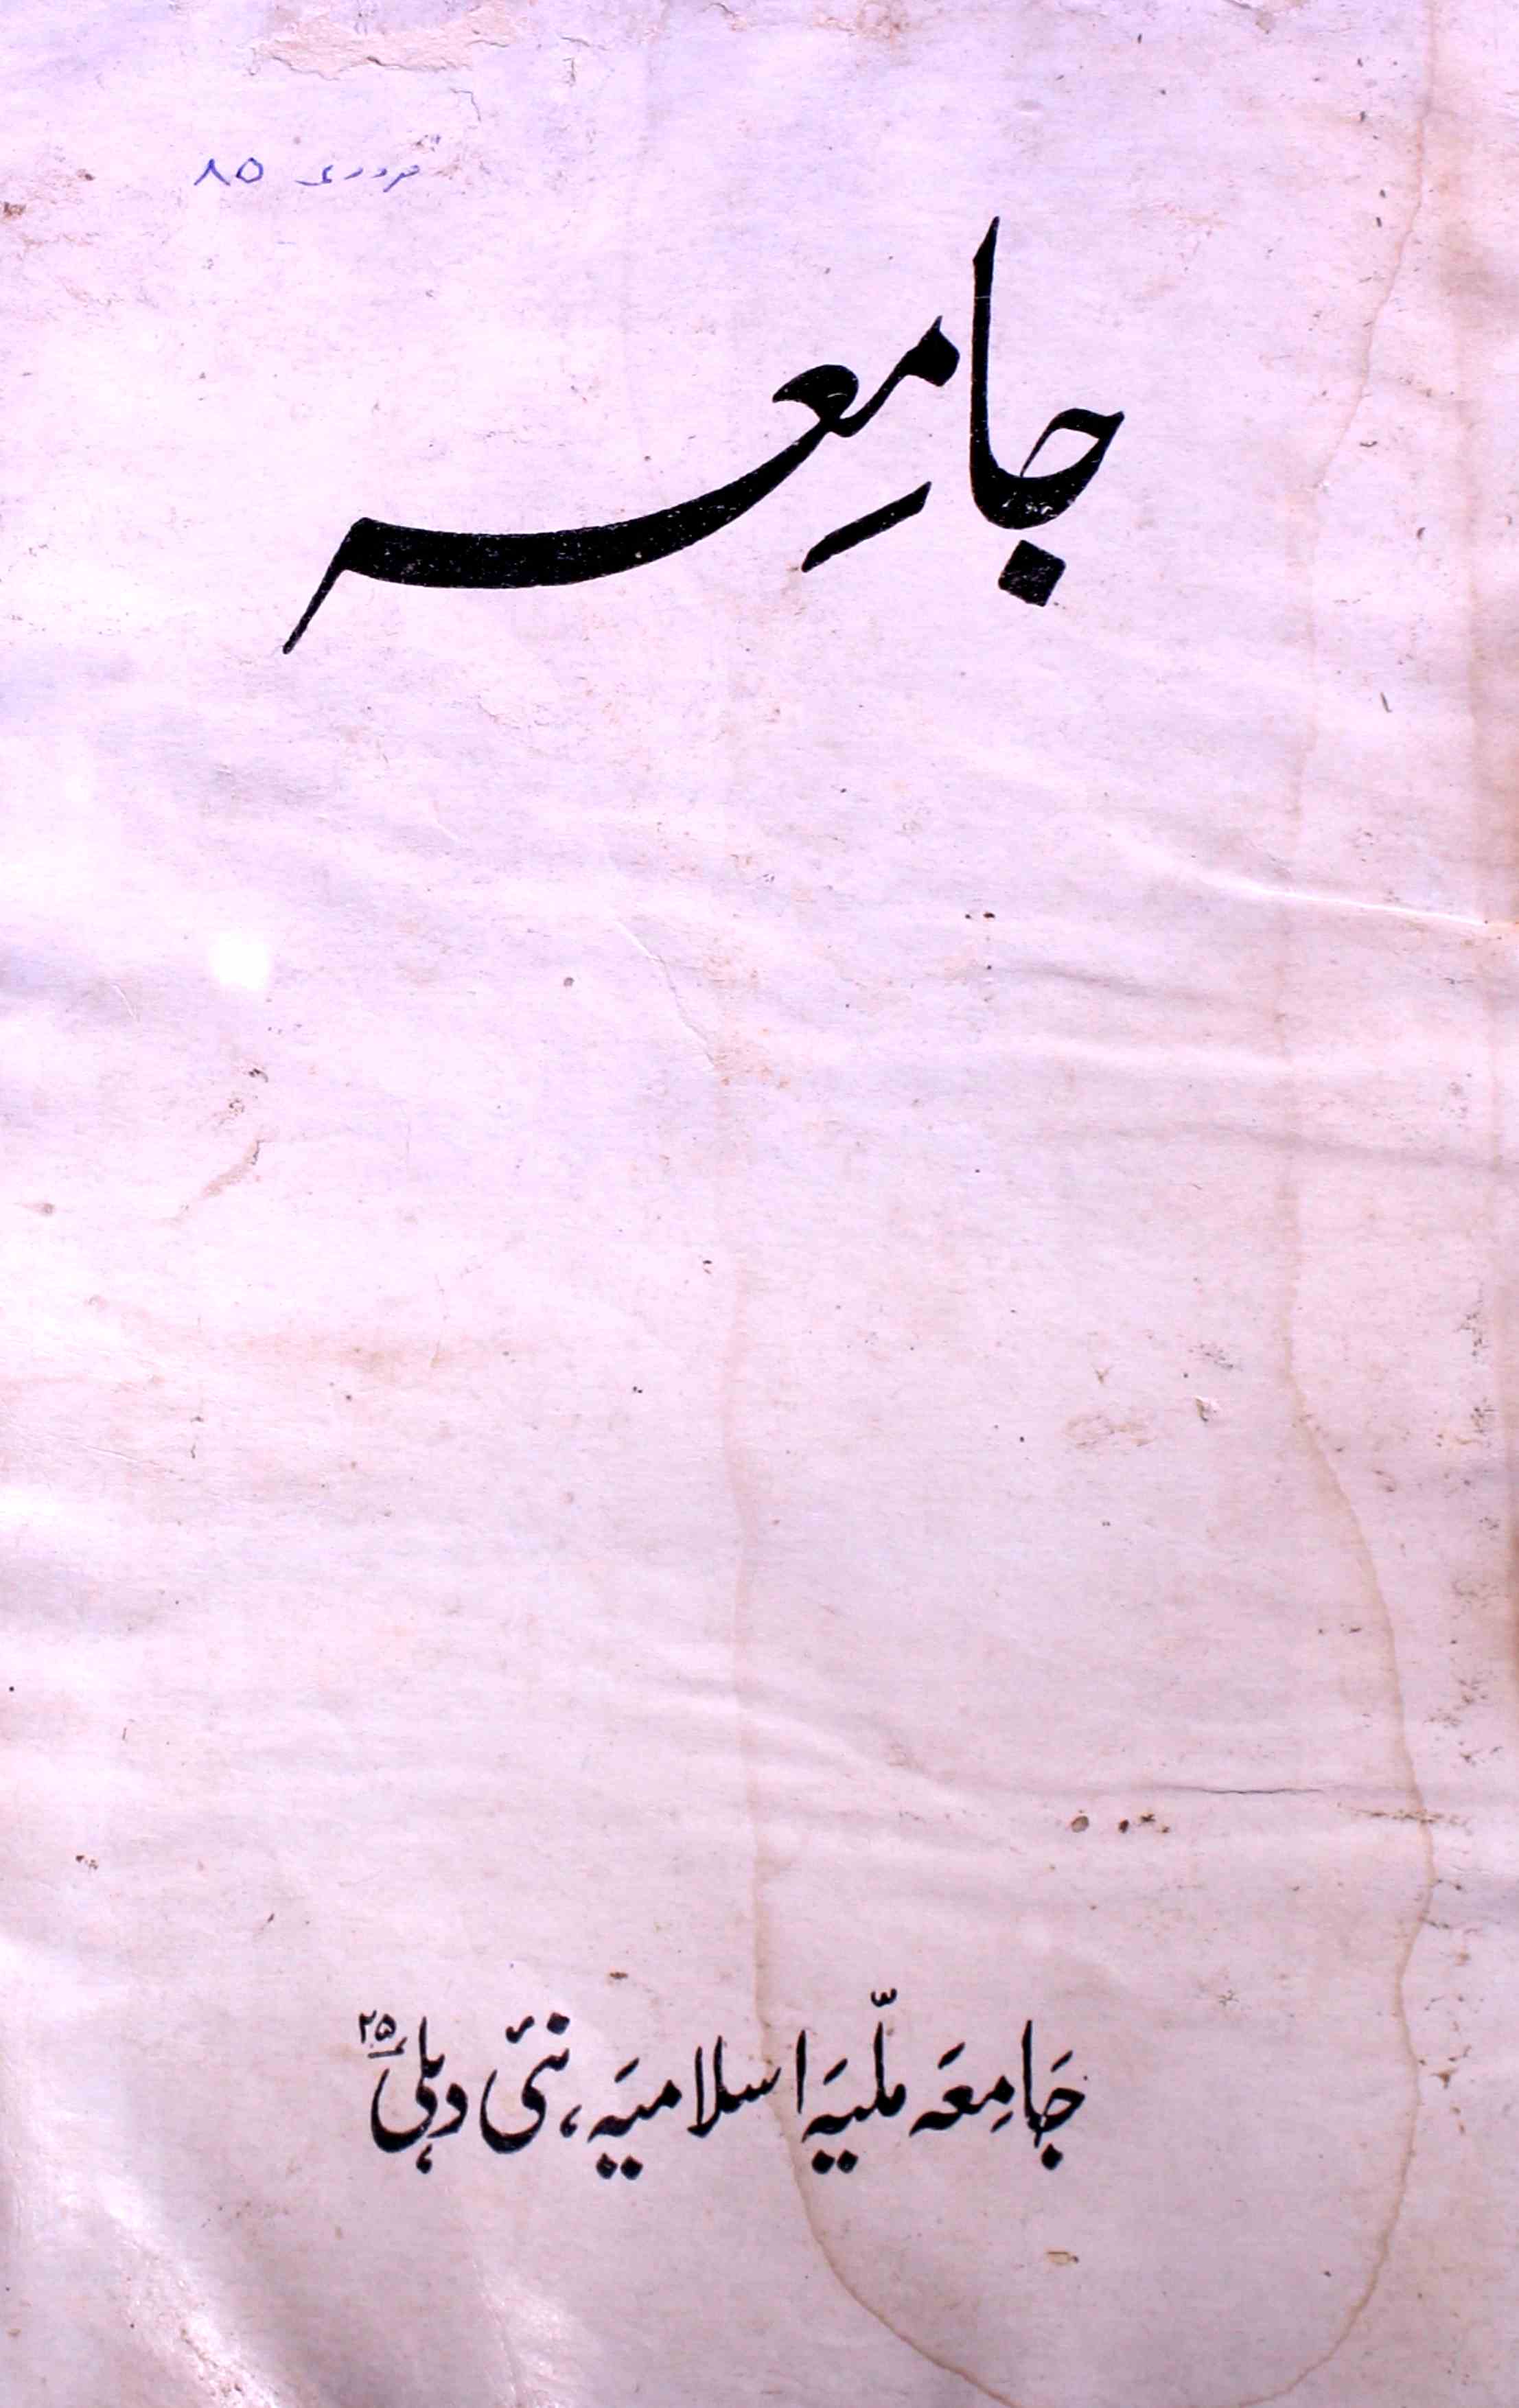 فروری ۸۵
جامِعہ
جَامِعَہ ملّیَہ اسلامیَہ، نئی دہلی ۲۵